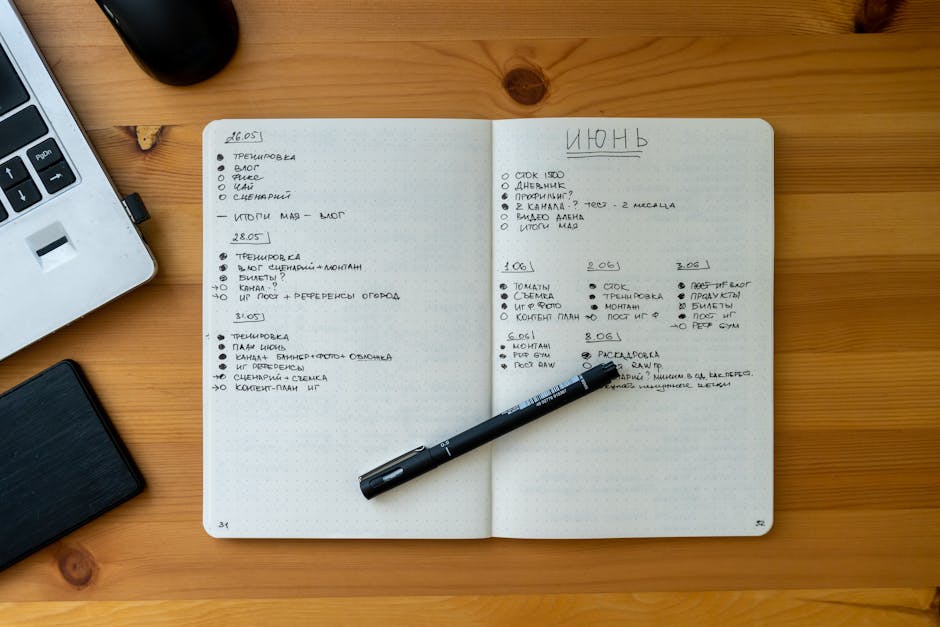 PgDn
26.05
ТРЕНИРОВКА
ВЛОГ
ФИКС
ЧАЙ
СЦЕНАРИЙ
— ИТОГИ МАЯ – ВЛОГ
28.05
ТРЕНИРОВКА
ВЛОГ СЦЕНАРИЙ + МОНТАЖ
БИЛЕТЫ?
КАНАЛ-?
ИГ ПОСТ + РЕФЕРЕНСЫ ОГОРОД
31.05
ТРЕНИРОВКА
ПЛАН ИЮНЬ
КАНАЛ + БАННЕР + ФОТО + ОБЛОЖКА
ИГ РЕФЕРЕНСЫ
СЦЕНАРИЙ + СЪЕМКА
КОНТЕНТ-ПЛАН ИГ
31
ИЮНЬ
СТОК 1500
ДНЕВНИК
ПРОФИЛЬ ИГ?
2 КАНАЛА-? ТЕСТ – 2 МЕСЯЦА
ВИДЕО АЛЕНА
ИТОГИ МАЯ
1.06
ТОМАТЫ
СЪЕМКА
ИГ Ф ФОТО
КОНТЕНТ ПЛАН
2.06
СТОК
ТРЕНИРОВКА
МОНТАЖ
ПОСТ ИГ Ф
3.06
ПОСТ ИГ ВЛОГ
ПРОДУКТЫ
БИЛЕТЫ
ПОСТ ИГ
РЕФ GYM
6.06
МОНТАЖ
РЕФ GYM
ПОСТ RAW
8.06
РАСКАДРОВКА
RAW ПР.
МИНИМ. В ОД. КАК ПЕРЕСТ.
НЕНУЖНЫЕ ВЕЩИ
32
0.8